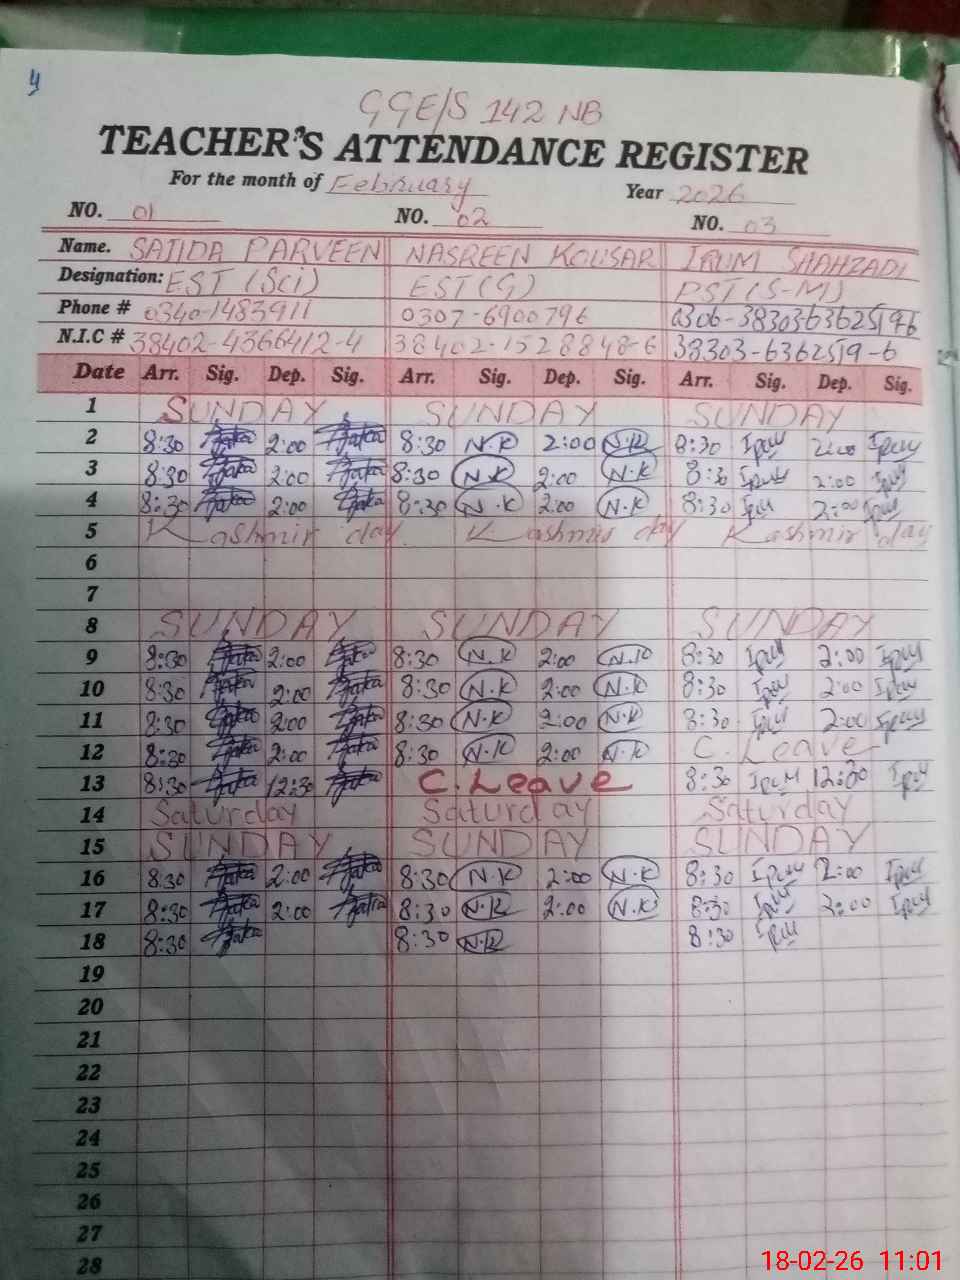 4
GGE/S 142 NB
TEACHER'S ATTENDANCE REGISTER
For the month of February Year 2026
NO. 01 NO. 02 NO. 03
Name. SAJIDA PARVEEN NASREEN KOUSAR IRUM SHAHZADI
Designation: EST (Sci) EST (G) PST (S-M)
Phone # 0340-1483911 0307-6900796
N.I.C # 38402-4366412-4 38402-1528848-6 38303-6362519-6
Date Arr. Sig. Dep. Sig. Arr. Sig. Dep. Sig. Arr. Sig. Dep. Sig.
1 SUNDAY SUNDAY SUNDAY
2 8:30 2:00 8:30 N.K 2:00 N.K 8:30 2:00
3 8:30 2:00 8:30 N.K 2:00 N.K 8:30 2:00
4 8:30 2:00 8:30 N.K 2:00 N.K 8:30 2:00
5 Kashmir day Kashmir day Kashmir day
6
7
8 SUNDAY SUNDAY SUNDAY
9 8:30 2:00 8:30 N.K 2:00 N.K 8:30 2:00
10 8:30 2:00 8:30 N.K 2:00 N.K 8:30 2:00
11 8:30 2:00 8:30 N.K 2:00 N.K 8:30 2:00
12 8:30 2:00 8:30 N.K 2:00 N.K C. Leave
13 8:30 12:30 C. Leave 8:30 12:30
14 Saturday Saturday Saturday
15 SUNDAY SUNDAY SUNDAY
16 8:30 2:00 8:30 N.K 2:00 N.K 8:30 2:00
17 8:30 2:00 8:30 N.K 2:00 N.K 8:30 2:00
18 8:30 8:30 N.K 8:30
19
20
21
22
23
24
25
26
27
28
18-02-26 11:01